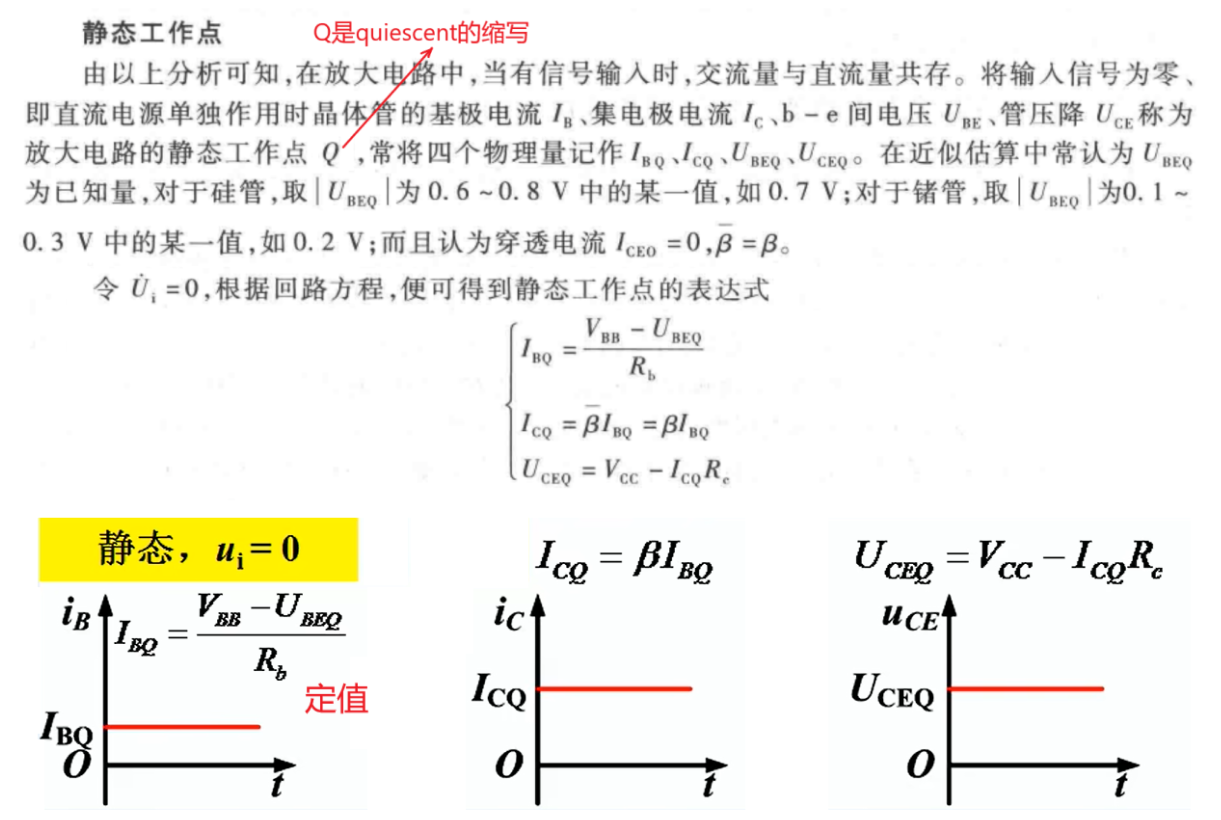 静态工作点
Q是quiescent的缩写
由以上分析可知,在放大电路中,当有信号输入时,交流量与直流量共存。将输入信号为零、
即直流电源单独作用时晶体管的基极电流 I_B、集电极电流 I_C、b-e 间电压 U_BE、管压降 U_CE称为
放大电路的静态工作点 Q,常将四个物理量记作I_BQ、I_CQ、U_BEQ、U_CEQ。在近似估算中常认为 U_BEQ
为已知量,对于硅管,取|U_BEQ|为 0.6~0.8 V 中的某一值,如 0.7 V;对于锗管,取|U_BEQ|为0.1~
0.3 V 中的某一值,如 0.2 V;而且认为穿透电流 I_CEO=0,β̄=β。
令 U̇_i=0,根据回路方程,便可得到静态工作点的表达式
I_BQ = (V_BB - U_BEQ) / R_b
I_CQ = β̄I_BQ = βI_BQ
U_CEQ = V_CC - I_CQ R_c
静态，u_i = 0
i_B
I_BQ = (V_BB - U_BEQ) / R_b
定值
I_BQ
O
t
I_CQ = βI_BQ
i_C
I_CQ
O
t
U_CEQ = V_CC - I_CQ R_c
u_CE
U_CEQ
O
t